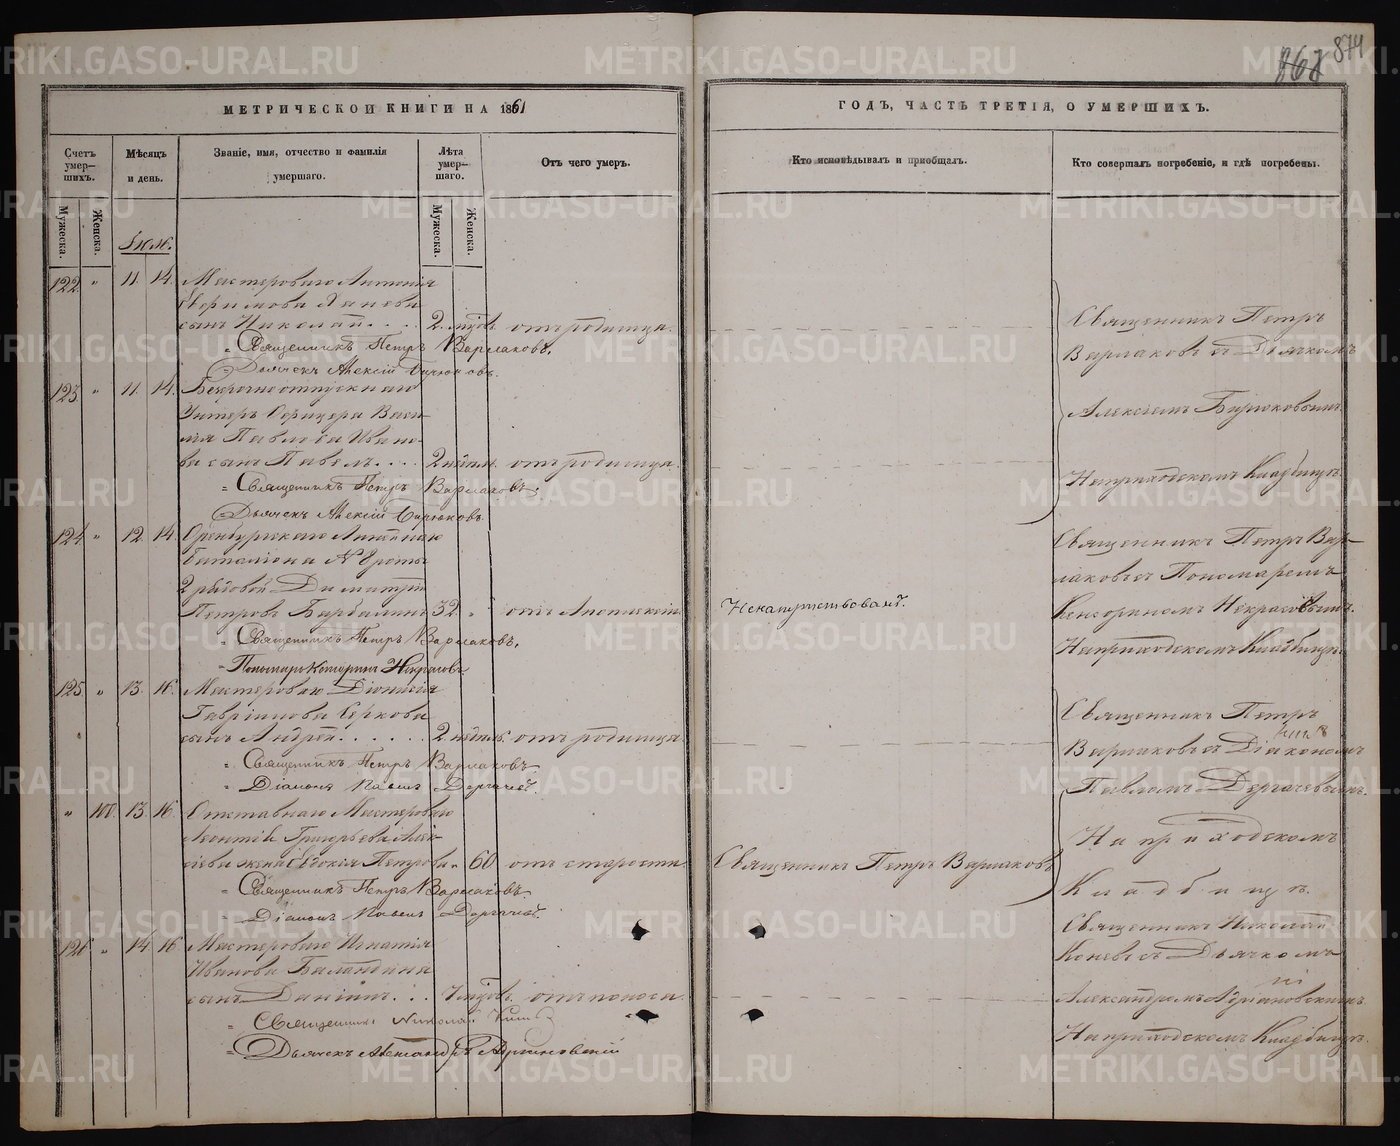 874
МЕТРИЧЕСКОЙ КНИГИ НА 1861
ГОДЪ, ЧАСТЬ ТРЕТІЯ, О УМЕРШИХЪ.
Счетъ умер-шихъ.
Мужеска.
Женска.
Мѣсяцъ и день.
Званіе, имя, отчество и фамилія умершаго.
Лѣта умер-шаго.
Мужеска.
Женска.
Отъ чего умеръ.
Кто исповѣдывалъ и пріобщалъ.
Кто совершалъ погребеніе, и гдѣ погребены.
122 " 11. 14. Мастероваго Антонія
сынъ Николай 2. отъ родимца.
Священникъ Петръ Варлаковъ.
Дьячекъ Алексій Бирюковъ.
Священникъ Петръ
Варлаковъ съ Дьячкомъ
Алексіемъ Бирюковымъ.
На приходскомъ Кладбищѣ.
123 " 11. 14. Безсрочноотпускнаго
Унтеръ Офицера Васи-
лія Павлова Ивано-
ва сынъ Павелъ 2 недѣл. отъ родимца.
Священникъ Петръ Варлаковъ.
Дьячекъ Алексій Бирюковъ.
124 " 12. 14. Оренбургскаго Линейнаго
баталіона роты
рядовой Димитрій
Петровъ 32 "
Священникъ Петръ Варлаковъ.
Пономарь Некрасовъ
Священникъ Петръ Вар-
лаковъ съ Пономаремъ
Некрасовымъ.
На приходскомъ Кладбищѣ.
125 " 13. 16. Мастероваго Діонисія
Гавріилова Серкова
сынъ Андрей 2 недѣл. отъ родимца.
Священникъ Петръ Варлаковъ
Діаконъ Павелъ Дергачевъ.
Священникъ Петръ
Варлаковъ съ Діакономъ
Павломъ Дергачевымъ.
На приходскомъ
Кладбищѣ.
" 101. 13. 16. Отставнаго Мастероваго
Леонтія Григорьева Алек-
сѣева жена Евдокія Петрова " 60 отъ старости
Священникъ Петръ Варлаковъ
Священникъ Петръ Варлаковъ
Діаконъ Павелъ Дергачевъ.
126 " 14. 16. Мастероваго Игнатія
Иванова Баландина
сынъ Даніилъ отъ поноса
Священникъ Николай
Дьячекъ Александръ Адріановскій
Священникъ Николай
Коневъ съ Дьячкомъ
Александромъ Адріановскимъ.
На приходскомъ Кладбищѣ.
METRIKI.GASO-URAL.RU